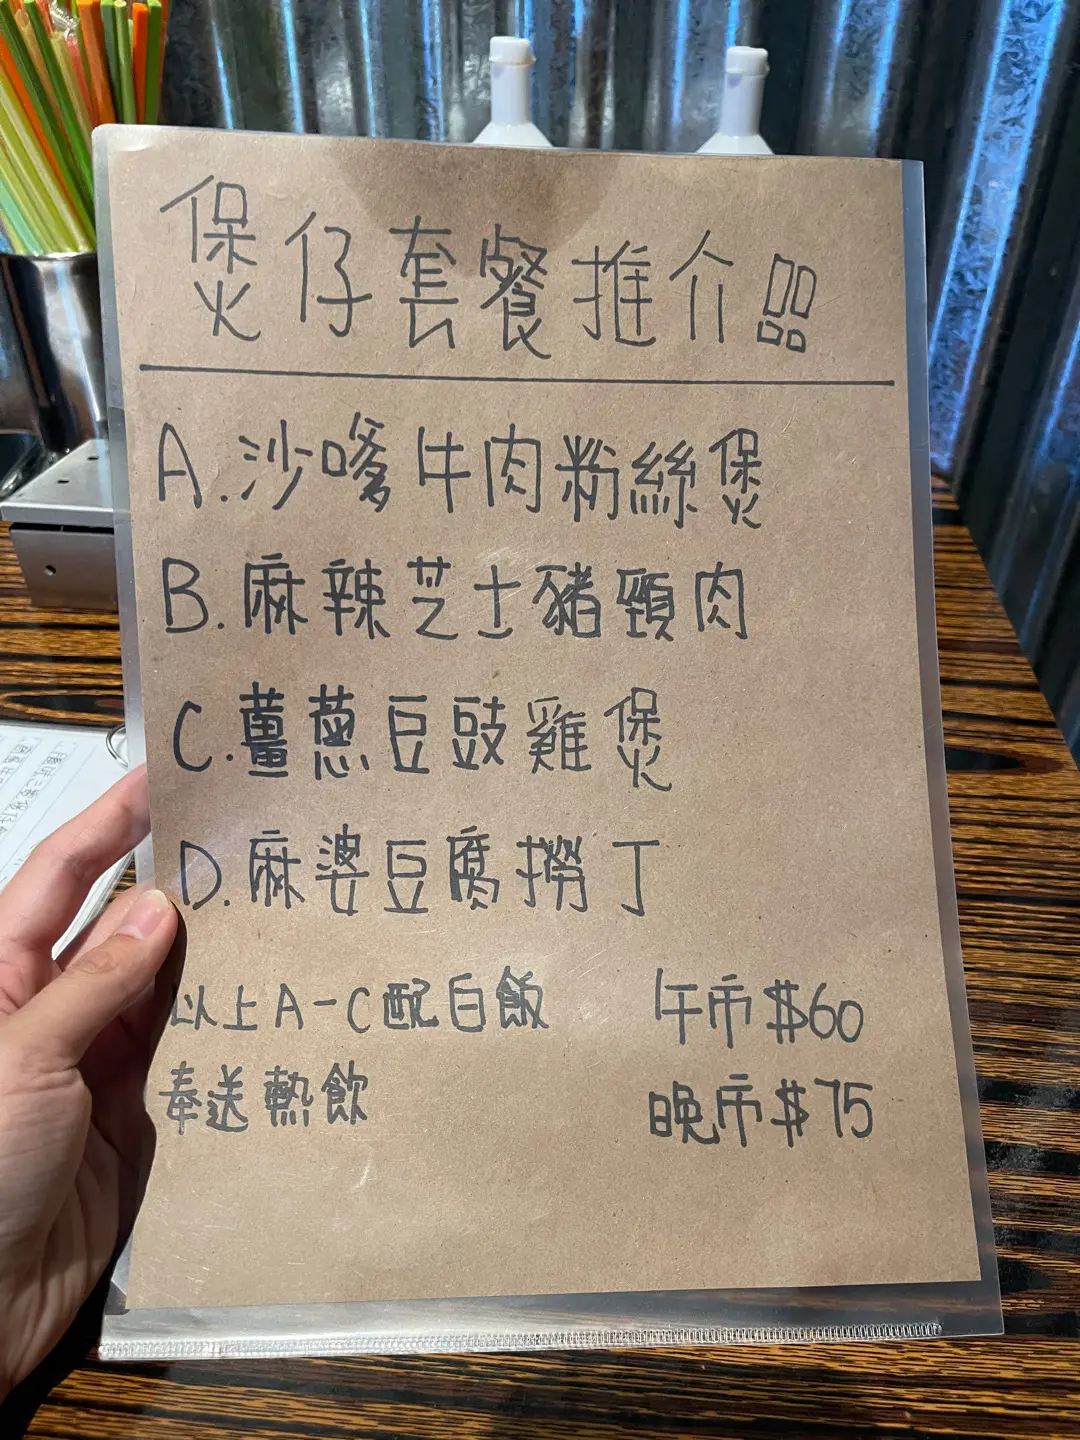 煲仔套餐推介!!
A.沙嗲牛肉粉絲煲
B.麻辣芝士豬頸肉
C.薑蔥豆豉雞煲
D.麻婆豆腐撈丁
以上A-C配白飯 午市$60
奉送熱飲 晚市$75